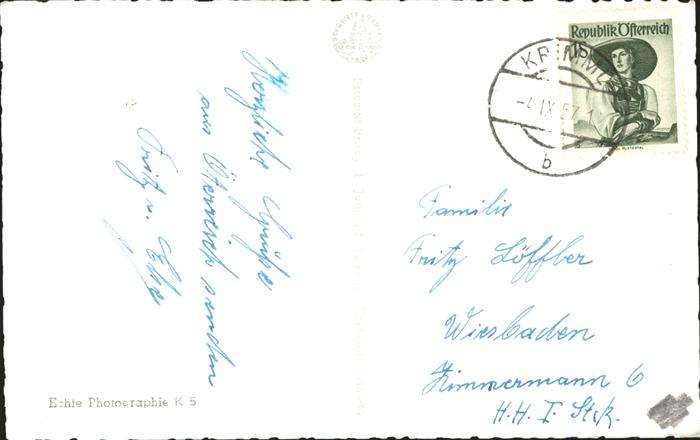 Herzliche Grüße
aus Österreich senden
Fritz u. Else
Echte Photographie K 5
Republik Österreich
KRIMML
IX 57
b
Familie
Fritz Löffler
Wiesbaden
Zimmermann 6
H.H. I. Stck.